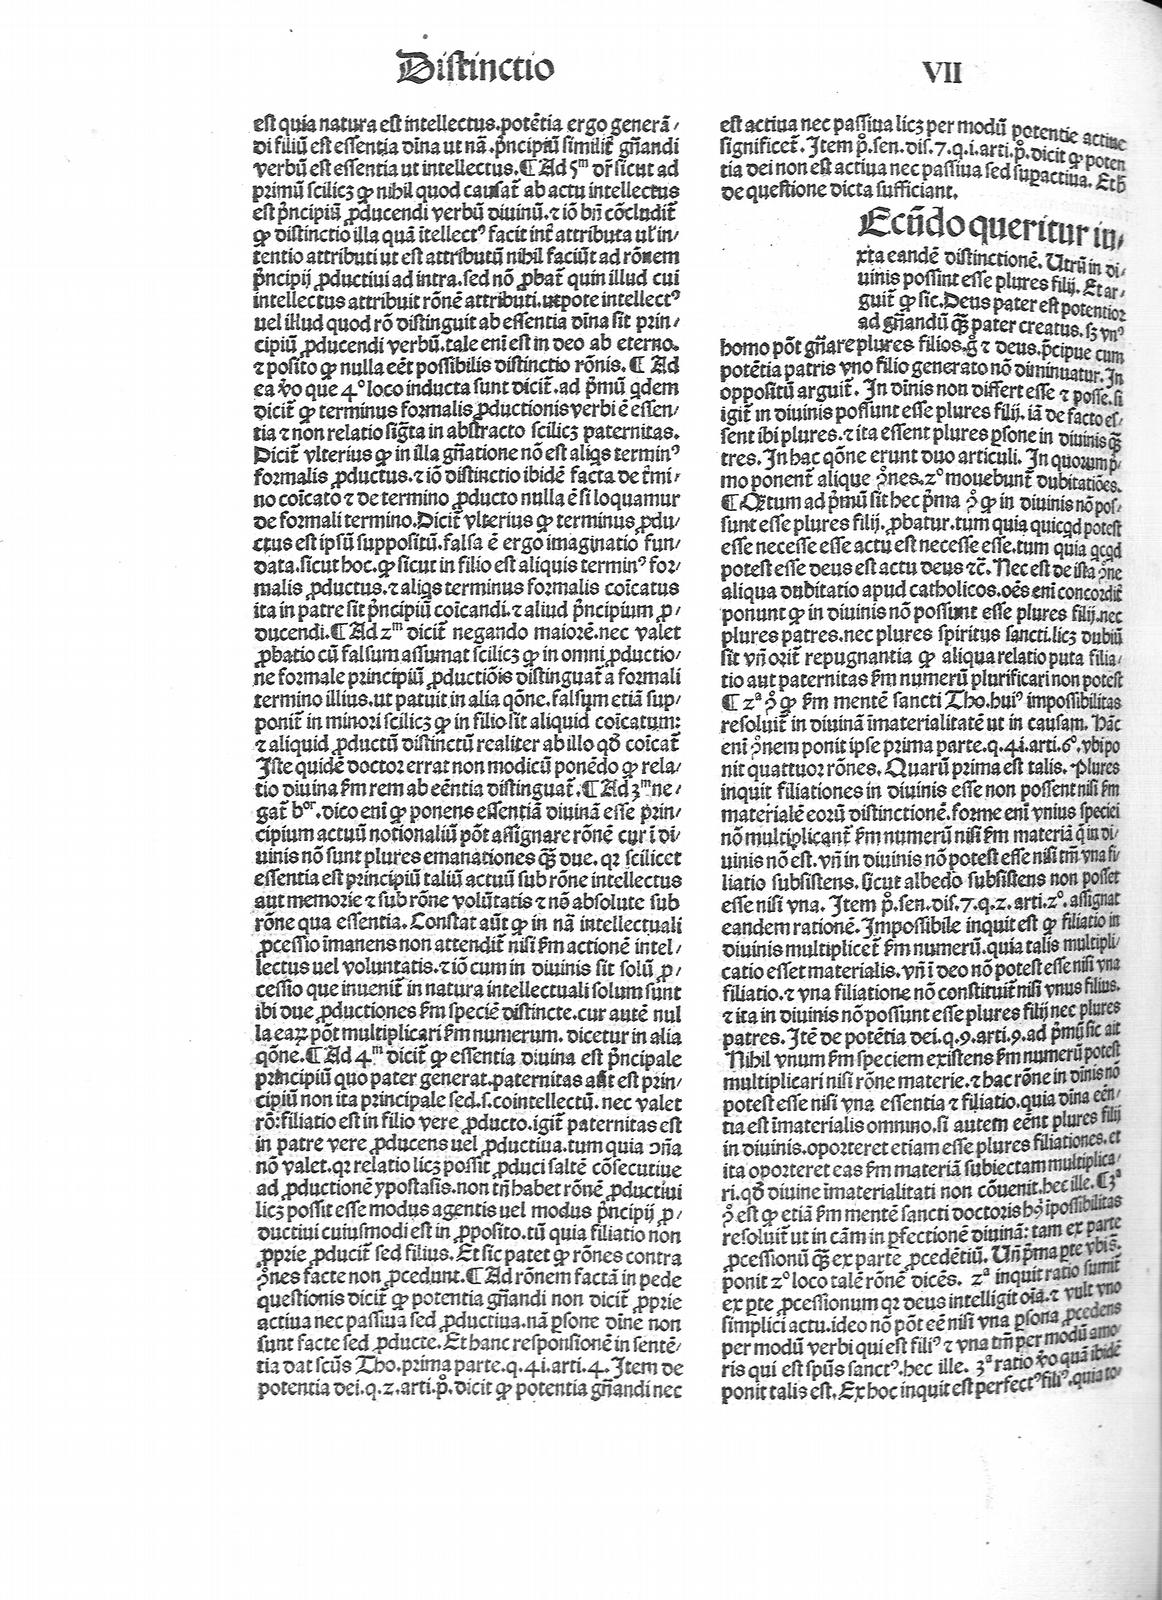 Distinctio
VII
est quia natura est intellectus.potẽtia ergo generã/
di filiũ est essentia diña ut nã.pñcipiũ similit̃ gñandi
verbũ est essentia ut intellectus.¶Ad 5ᵐ dr̃ sicut ad
primũ scilicꝫ ꝙ nihil quod causat̃ ab actu intellectus
est pñcipiũ ꝓducendi verbũ diuinũ.⁊ iõ bñ cõcludit̃
ꝙ distinctio illa quã ĩtellectꝰ facit int̃ attributa ul̃ in/
tentio attributi ut est attributũ nihil faciũt ad rõnem
pñcipij ꝓductiui ad intra.sed nõ ꝓbat̃ quin illud cui
intellectus attribuit rõnẽ attributi.utpote intellectꝰ
uel illud quod rõ distinguit ab essentia diña sit prin/
cipiũ ꝓducendi verbũ.tale eni est in deo ab eterno.
⁊ posito ꝙ nulla eẽt possibilis distinctio rõnis. ¶ Ad
ea ṽo que 4º loco inducta sunt dicit̃.ad pmũ qdem
dicit̃ ꝙ terminus formalis ꝓductionis verbi ẽ essen/
tia ⁊ non relatio sigta in abstracto scilicꝫ paternitas.
Dicit̃ vlterius ꝙ in illa gñatione nõ est aliqs terminꝰ
formalis ꝓductus.⁊ iõ distinctio ibidẽ facta de t̃mi/
no coĩcato ⁊ de termino ꝓducto nulla ẽ si loquamur
de formali termino.Dicit̃ vlterius ꝙ terminus ꝓdu/
ctus est ipsũ suppositũ.falsa ẽ ergo imaginatio fun/
data.sicut hoc.ꝙ sicut in filio est aliquis terminꝰ for/
malis ꝓductus.⁊ aliqs terminus formalis coĩcatus
ita in patre sit pñcipiũ coĩcandi.⁊ aliud pñcipium ꝓ/
ducendi.¶Ad 2ᵐ dicit̃ negando maiorẽ.nec valet
ꝓbatio cũ falsum assumat scilicꝫ ꝙ in omni ꝓductio/
ne formale principiũ ꝓductiõis distinguat̃ a formali
termino illius.ut patuit in alia qõne.falsum etiã sup/
ponit̃ in minori scilicꝫ ꝙ in filio sit aliquid coĩcatum:
⁊ aliquid ꝓductũ distinctũ realiter ab illo qð coĩcat̃
Iste quidẽ doctor errat non modicũ ponẽdo ꝙ rela/
tio diuina ẜm rem ab eẽntia distinguat̃.¶Ad 3ᵐ ne/
gat̃ bor.dico eni ꝙ ponens essentiã diuinã esse prin/
cipium actuũ notionaliũ põt assignare rõnẽ cur ĩ di/
uinis nõ sunt plures emanationes qꝫ due. qꝛ scilicet
essentia est principiũ taliũ actuũ sub rõne intellectus
aut memorie ⁊ sub rõne volũtatis ⁊ nõ absolute sub
rõne qua essentia. Constat aũt ꝙ in nã intellectuali
ꝓcessio ĩmanens non attendit̃ nisi ẜm actionẽ intel/
lectus uel voluntatis.⁊ iõ cum in diuinis sit solũ ꝓ/
cessio que inuenit̃ in natura intellectuali solum sunt
ibi due ꝓductiones ẜm speciẽ distincte.cur autẽ nul
la eaꝝ põt multiplicari ẜm numerum. dicetur in alia
qõne.¶Ad 4ᵐ dicit̃ ꝙ essentia diuina est pñcipale
principiũ quo pater generat.paternitas aũt est prin/
cipiũ non ita principale sed.s.cointellectũ. nec valet
rõ:filiatio est in filio vere ꝓducto.igit̃ paternitas est
in patre vere ꝓducens uel ꝓductiua.tum quia ɔñã
nõ valet.qꝛ relatio licꝫ possit ꝓduci saltẽ cõsecutiue
ad ꝓductionẽ ypostasis.non tñ habet rõnẽ ꝓductiui
licꝫ possit esse modus agentis uel modus pñcipij ꝓ/
ductiui cuiusmodi est in ꝓposito.tũ quia filiatio non
ꝓprie ꝓducit̃ sed filius. Et sic patet ꝙ rõnes contra
ɔ̃nes facte non ꝓcedunt.¶Ad rõnem factã in pede
questionis dicit̃ ꝙ potentia gñandi non dicit̃ ꝓprie
actiua nec passiua sed ꝓductiua.nã ꝑsone diñe non
sunt facte sed ꝓducte. Et hanc responsionẽ in sentẽ/
tia dat scũs Tho.prima parte.q.41.arti.4. Item de
potentia dei.q.2.arti.p̊.dicit ꝙ potentia gñandi nec
est actiua nec passiua licꝫ per modũ potentie actiue
significet̃. Item p̊.sen.dis.7.q.1.arti.p̊.dicit ꝙ poten
tia dei non est actiua nec passiua sed supactiua. Et ħ
de questione dicta sufficiant.
Ecũdo queritur iu/
xta eandẽ distinctionẽ. Utrũ in di/
uinis possint esse plures filij. Et ar/
guit̃ ꝙ sic.Deus pater est potentior
ad gñandũ qꝫ pater creatus.sꝫ vnꝰ
homo põt gñare plures filios.g̊ ⁊ deus.pcipue cum
potẽtia patris vno filio generato nõ diminuatur. In
oppositũ arguit̃. In diñis non differt esse ⁊ posse.si
igit̃ in diuinis possunt esse plures filij. iã de facto es/
sent ibi plures.⁊ ita essent plures ꝑsone in diuinis qꝫ
tres. In hac qõne erunt duo articuli. In quorum p/
mo ponent̃ alique ɔ̃nes.2º mouebunt̃ dubitatiões.
¶Qꝫtum ad pmũ sit hec pma ɔ̊ ꝙ in diuinis nõ pos/
sunt esse plures filij. ꝓbatur.tum quia quicqd potest
esse necesse esse actu est necesse esse.tum quia qcqd
potest esse deus est actu deus ⁊c̃. Nec est de ista ɔ̃ne
aliqua dubitatio apud catholicos.oẽs eni concordit̃
ponunt ꝙ in diuinis nõ possunt esse plures filij.nec
plures patres.nec plures spiritus sancti.licꝫ dubiũ
sit vñ orit̃ repugnantia ꝙ aliqua relatio puta filia/
tio aut paternitas ẜm numerũ plurificari non potest
¶ 2ª ɔ̊ ꝙ ẜm mentẽ sancti Tho.huiꝰ impossibilitas
resoluit̃ in diuinã ĩmaterialitatẽ ut in causam. Hãc
eni ɔ̃nem ponit ipse prima parte.q.41.arti.6º.vbi po
nit quattuor rõnes. Quarũ prima est talis. Plures
inquit filiationes in diuinis esse non possent nisi ẜm
materialẽ eorũ distinctionẽ.forme eni vnius speciei
nõ multiplicant̃ ẜm numerũ nisi ẜm materiã q̃ in di/
uinis nõ est. vñ in diuinis nõ potest esse nisi tm̃ vna fi/
liatio subsistens. sicut albedo subsistens non posset
esse nisi vna. Item p̊.sen.dis.7.q.2.arti.2º. assignat
eandem rationẽ. Impossibile inquit est ꝙ filiatio in
diuinis multiplicet̃ ẜm numerũ.quia talis multipli/
catio esset materialis. vñ ĩ deo nõ potest esse nisi vna
filiatio.⁊ vna filiatione nõ constituit̃ nisi vnus filius.
⁊ ita in diuinis nõ possunt esse plures filij nec plures
patres. Itẽ de potẽtia dei.q.9.arti.9.ad pmũ sic ait
Nihil vnum ẜm speciem existens ẜm numerũ potest
multiplicari nisi rõne materie.⁊ hac rõne in diñis nõ
potest esse nisi vna essentia ⁊ filiatio.quia diña eẽn/
tia est ĩmaterialis omnino.si autem eẽnt plures filij
in diuinis.oporteret etiam esse plures filiationes.et
ita oporteret eas ẜm materiã subiectam multiplica/
ri.qð diuine ĩmaterialitati non cõuenit.hec ille.¶3ª
ɔ̊ est ꝙ etiã ẜm mentẽ sancti doctoris hꝰ ĩpossibilitas
resoluit̃ ut in cãm in ꝑfectionẽ diuinã: tam ex parte
ꝓcessionũ qꝫ ex parte ꝓcedẽtiũ. Uñ pma pte vbi s̃.
ponit 2º loco talẽ rõnẽ dicẽs. 2ª inquit ratio sumit̃
ex ꝑte ꝓcessionum qꝛ deus intelligit oĩa.⁊ vult vno
simplici actu.ideo nõ põt eẽ nisi vna ꝑsona ꝓcedens
per modũ verbi qui est filiꝰ ⁊ vna tm̃ per modũ amo/
ris qui est spũs sanctꝰ.hec ille. 3ª ratio ṽo quã ibidẽ
ponit talis est. Ex hoc inquit est perfectꝰ filiꝰ.quia to/